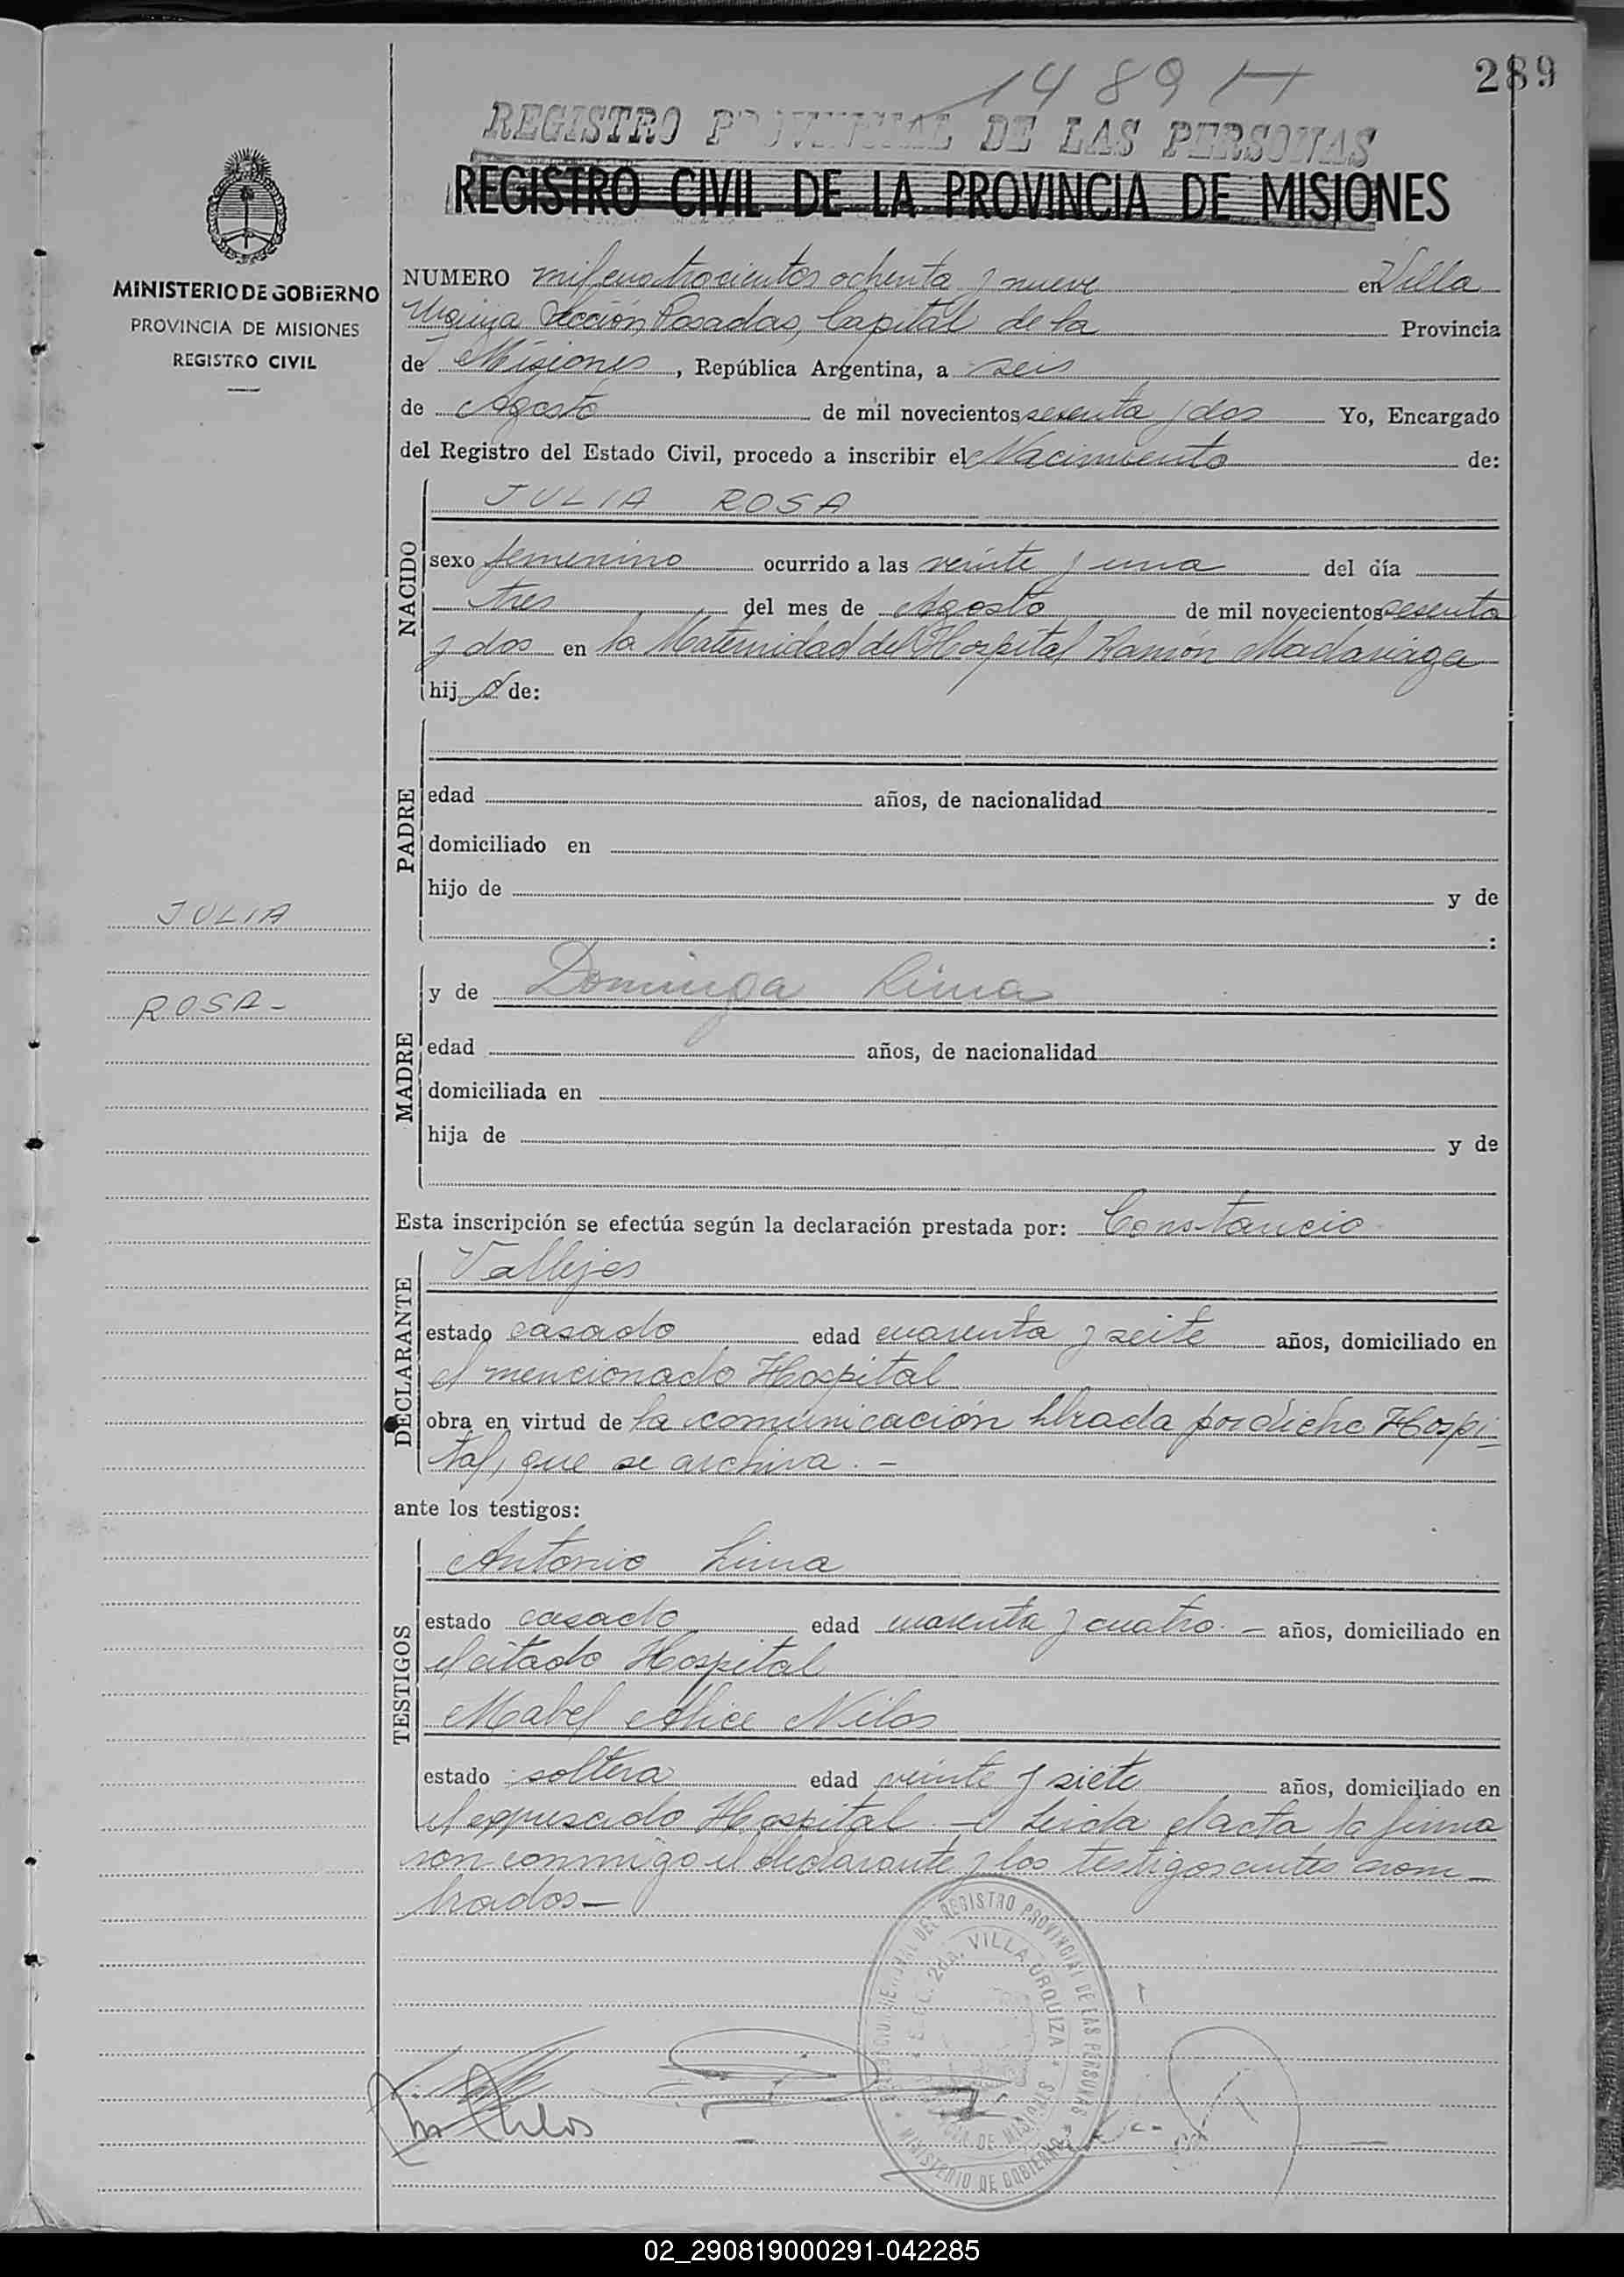 1489 H
289
REGISTRO PROVINCIAL DE LAS PERSONAS
REGISTRO CIVIL DE LA PROVINCIA DE MISIONES
MINISTERIO DE GOBIERNO
PROVINCIA DE MISIONES
REGISTRO CIVIL
NUMERO mil cuatrocientos ochenta y nueve en Villa
Urquiza Sección, Posadas, Capital de la Provincia
de Misiones, República Argentina, a seis
de Agosto de mil novecientos sesenta y dos Yo, Encargado
del Registro del Estado Civil, procedo a inscribir el Nacimiento de:
NACIDO
JULIA ROSA
sexo femenino ocurrido a las veinte y una del día
tres del mes de Agosto de mil novecientos sesenta
y dos en la Maternidad del Hospital Ramón Madariaga
hij de:
PADRE
edad años, de nacionalidad
domiciliado en
hijo de y de
:
JULIA
ROSA-
MADRE
y de Dominga Lima
edad años, de nacionalidad
domiciliada en
hija de y de
Esta inscripción se efectúa según la declaración prestada por: Constancio
DECLARANTE
Vallejos
estado casado edad cuarenta y seite años, domiciliado en
el mencionado Hospital
obra en virtud de la comunicación librada por dicho Hospi-
tal, que se archiva.-
ante los testigos:
TESTIGOS
Antonio Lima
estado casado edad cuarenta y cuatro.- años, domiciliado en
el citado Hospital
Mabel Alice Nilos
estado soltera edad veinte y siete años, domiciliado en
el expresado Hospital.- Leida el acta la firma
ron conmigo el declarante y los testigos antes nom-
brados-
DEL REGISTRO PROVINCIAL DE LAS PERSONAS
SECC. 2da. VILLA URQUIZA
DE MISIONES
MINISTERIO DE GOBIERNO
02_290819000291-042285